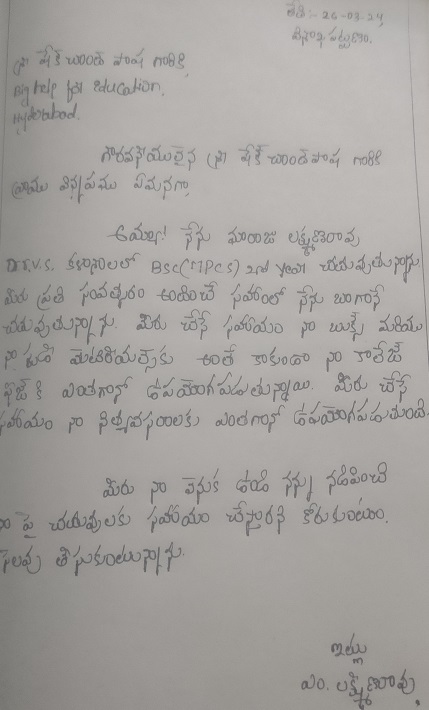 తేది:- 26-03-24,
విశాఖపట్టణం.
శ్రీ షేక్ చాంద్ పాష గారికి,
Big help for Education,
Hyderabad.
గౌరవనీయులైన శ్రీ షేక్ చాంద్ పాష గారికి
వ్రాయు విన్నపము ఏమనగా,
అయ్యా! నేను లక్ష్మణరావు
D.r.v.s. కళాశాలలో BSc(MPCS) 2nd year చదువుతున్నాను
మీరు ప్రతి సంవత్సరం అందించే సహాయంలో నేను బాగానే
చదువుతున్నాను. మీరు చేసే సహాయం నా బుక్స్ మరియు
నా స్టడీ మెటీరియల్స్‌కు అంతే కాకుండా నా కాలేజ్
ఫీజ్ కి ఎంతగానో ఉపయోగపడుతున్నాయి. మీరు చేసే
సహాయం నా నిత్యావసరాలకు ఎంతగానో ఉపయోగపడుతుంది.
మీరు నా వెనుక ఉండి నన్ను నడిపించి
నా పై చదువులకు సహాయం చేస్తారని కోరుకుంటూ,
సెలవు తీసుకుంటున్నాను.
ఇట్లు
ఎం. లక్ష్మణరావు.